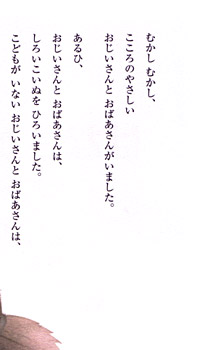 むかし むかし、
こころのやさしい
おじいさんと おばあさんがいました。
あるひ、
おじいさんと おばあさんは、
しろいこいぬを ひろいました。
こどもが いない おじいさんと おばあさんは、